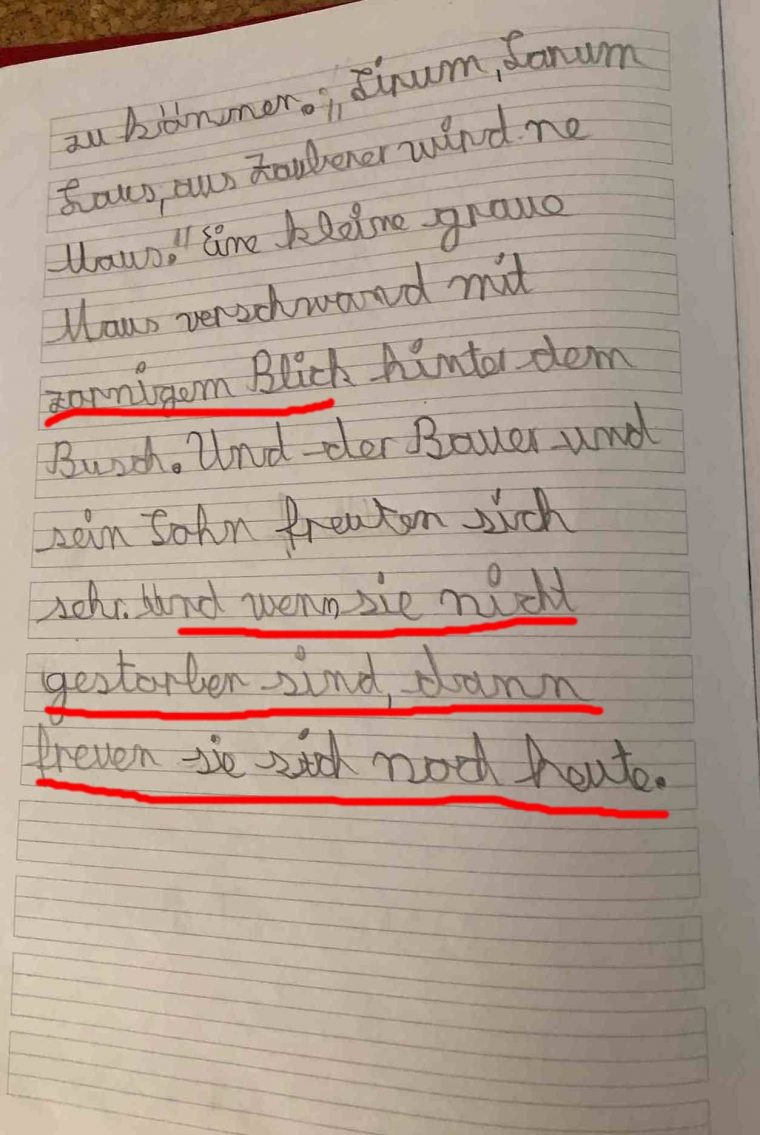 zu können. „Lirum, Larum
Laus, aus Zauberer wird ne
Maus." Eine kleine graue
Maus verschwand mit
zornigem Blick hinter dem
Busch. Und der Bauer und
sein Sohn freuten sich
sehr. Und wenn sie nicht
gestorben sind, dann
freuen sie sich noch heute.